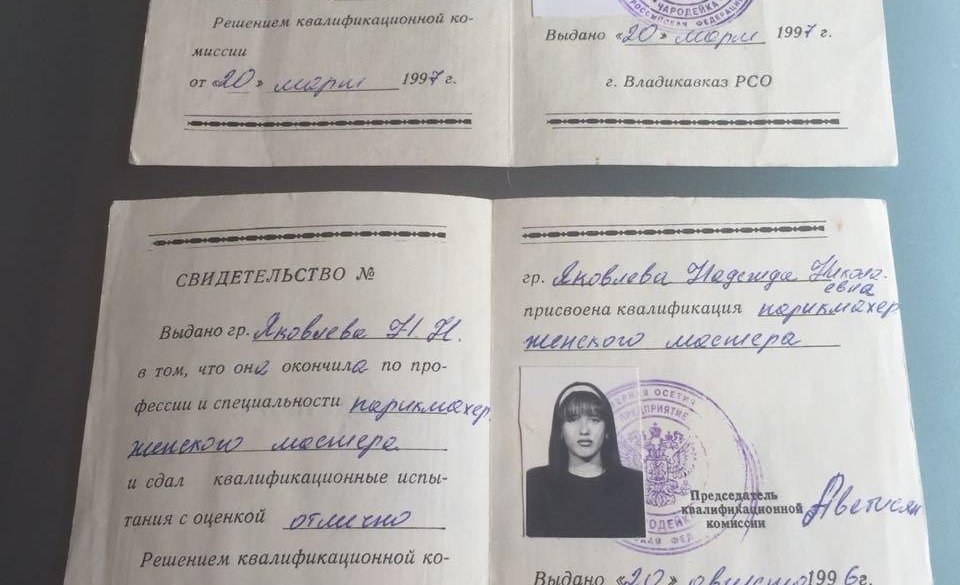 Решением квалификационной ко-
миссии
от «20» март 1997 г.
ЧАРОДЕЙКА
РОССИЙСКАЯ ФЕДЕРАЦИЯ
Выдано «20» март 1997 г.
г. Владикавказ РСО
СВИДЕТЕЛЬСТВО №
Выдано гр. Яковлева Н. Н.
в том, что она окончила по про-
фессии и специальности парикмахер
женского мастера
и сдал квалификационные испы-
тания с оценкой отлично
Решением квалификационной ко-
гр. Яковлева Надежда Никола-
евна
присвоена квалификация парикмахер
женского мастера
ОСЕТИЯ
ПРЕДПРИЯТИЕ
Председатель
квалификационной
комиссии
Выдано «20» августа 1996 г.